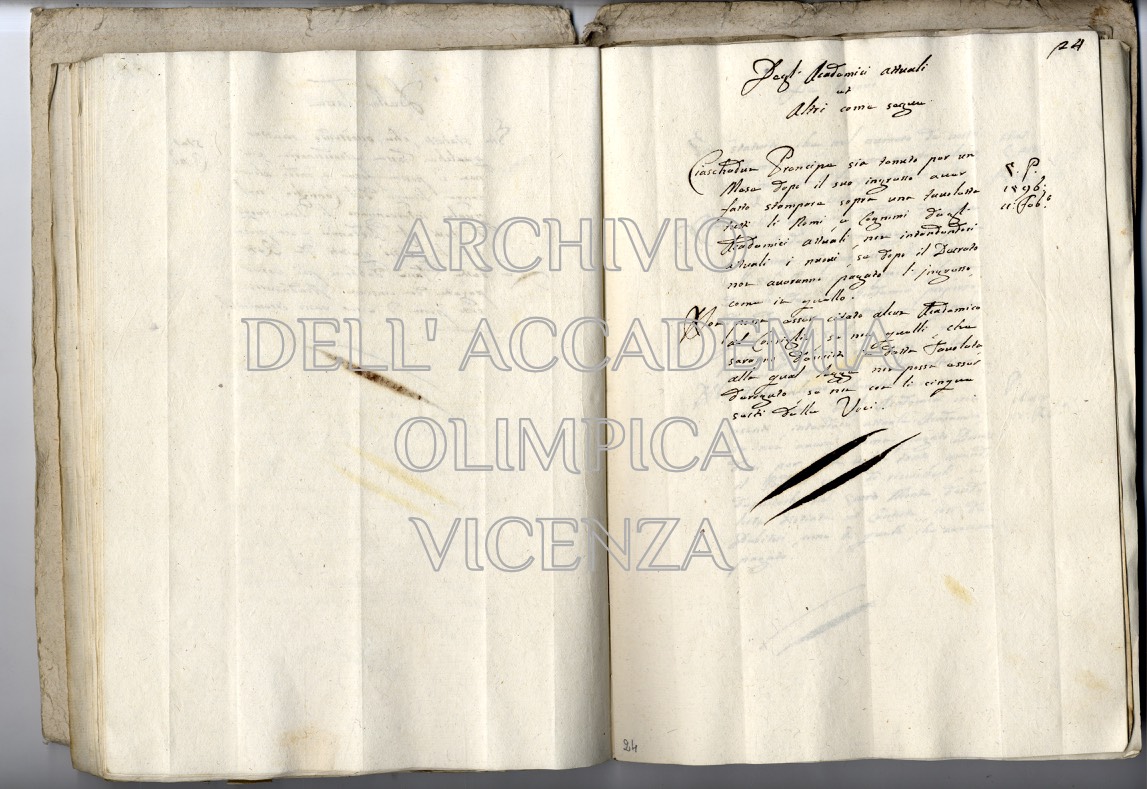 24
Degl' Academici attuali
et
Altri come segue.
Ciaschadun Prencipe sia tenuto per un
Mese dopo il suo ingresso aver
fatto stampare sopra una tavoletta
tutti li Nomi, e Cognomi degl'
Academici attuali, non intendentosi
attuali i nuovi, se dopo il Decreto
non averanno pagato l'ingresso,
come in quello.
S. P.
1596:
11: Feb.º
Non possa esser citato alcun Academico
al Consiglio se non quelli, che
saranno detta Tavoletta
alla qual legge non possa esser
derogato, se non con li cinque
sesti delle Voci.
24
ARCHIVIO
DELL' ACCADEMIA
OLIMPICA
VICENZA